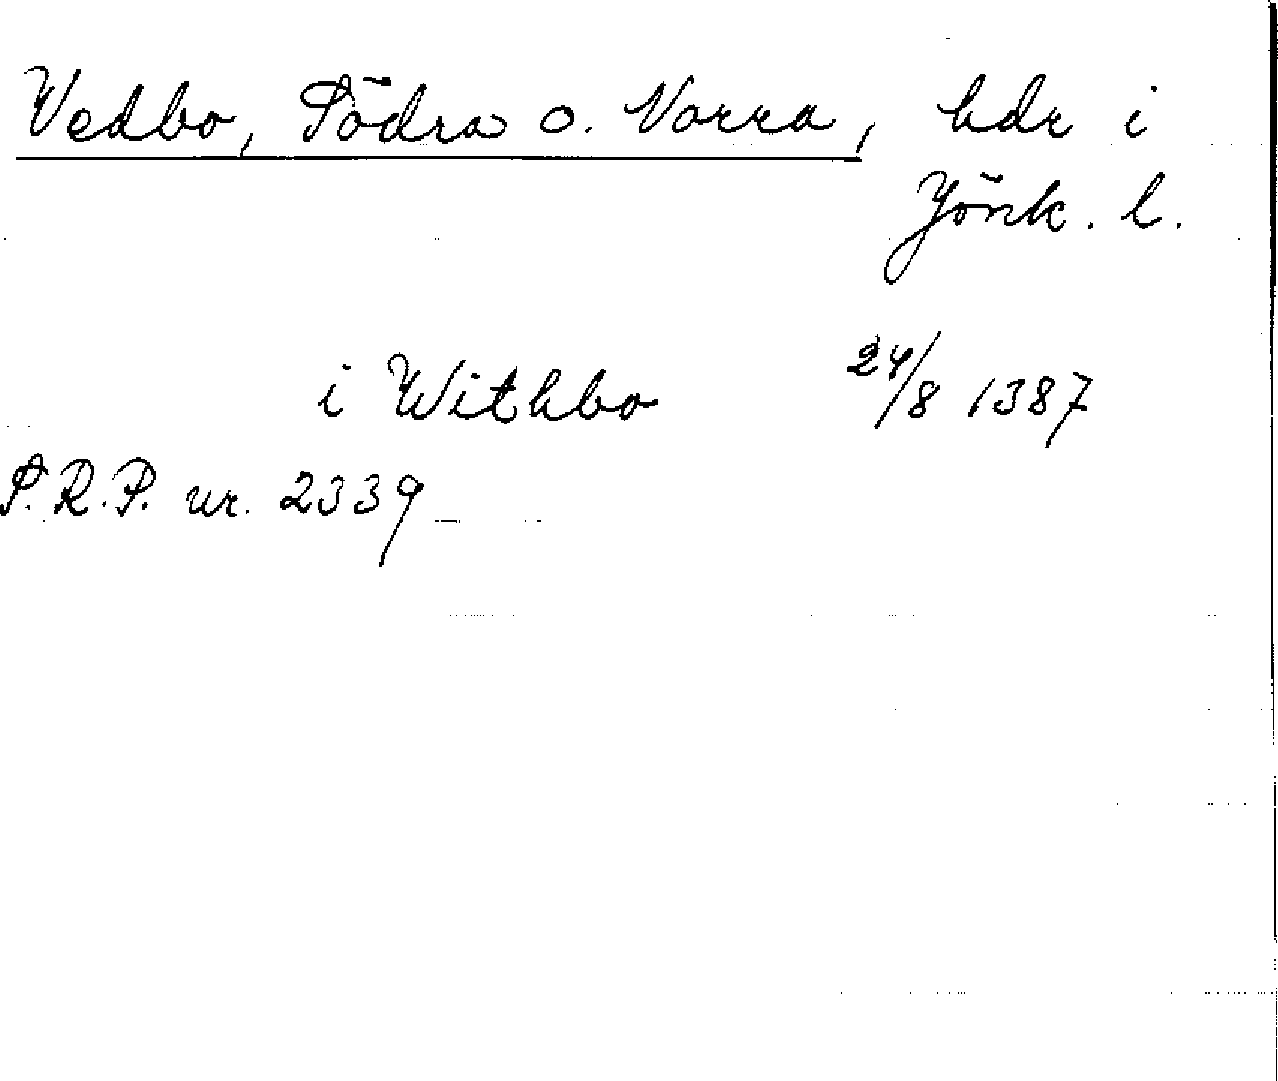 Vedbo, Södra o. Norra, hdr i
Jönk. l.
i Withbo 24/8 1387
S.R.P. nr. 2339